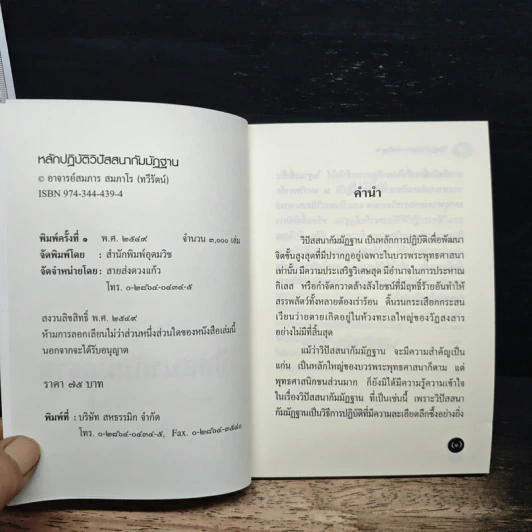 หลักปฏิบัติวิปัสสนากัมมัฏฐาน
© อาจารย์สมภาร สมภาโร (ทวีรัตน์)
ISBN 974-344-439-4
พิมพ์ครั้งที่ ๑ พ.ศ. ๒๕๔๙ จำนวน ๓,๐๐๐ เล่ม
จัดพิมพ์โดย : สำนักพิมพ์อุตมวิช
จัดจำหน่ายโดย : สายส่งดวงแก้ว
โทร. ๐-๒๘๖๔-๐๔๓๔-๕
สงวนลิขสิทธิ์ พ.ศ. ๒๕๔๙
ห้ามการลอกเลียนไม่ว่าส่วนหนึ่งส่วนใดของหนังสือเล่มนี้
นอกจากจะได้รับอนุญาต
ราคา ๗๕ บาท
พิมพ์ที่ : บริษัท สหธรรมิก จำกัด
โทร. ๐-๒๘๖๔-๐๔๓๔-๕, Fax. ๐-๒๘๖๔-
คำนำ
วิปัสสนากัมมัฏฐาน เป็นหลักการปฏิบัติเพื่อพัฒนา
จิตขั้นสูงสุดที่มีปรากฏอยู่เฉพาะในบวรพระพุทธศาสนา
เท่านั้น มีความประเสริฐวิเศษสุด มีอำนาจในการประหาณ
กิเลส หรือกำจัดกวาดล้างสังโยชน์ที่มีฤทธิ์ร้ายอันทำให้
สรรพสัตว์ทั้งหลายต้องเร่าร้อน ดิ้นรนกระเสือกกระสน
เวียนว่ายตายเกิดอยู่ในห้วงทะเลใหญ่ของวัฏสงสาร
อย่างไม่มีที่สิ้นสุด
แม้ว่าวิปัสสนากัมมัฏฐาน จะมีความสำคัญเป็น
แก่น เป็นหลักใหญ่ของบวรพระพุทธศาสนาก็ตาม แต่
พุทธศาสนิกชนส่วนมาก ก็ยังมิได้มีความรู้ความเข้าใจ
ในเรื่องวิปัสสนากัมมัฏฐาน ที่เป็นเช่นนี้ เพราะวิปัสสนา
กัมมัฏฐานเป็นวิธีการปฏิบัติที่มีความละเอียดลึกซึ้งอย่างยิ่ง
(๑)